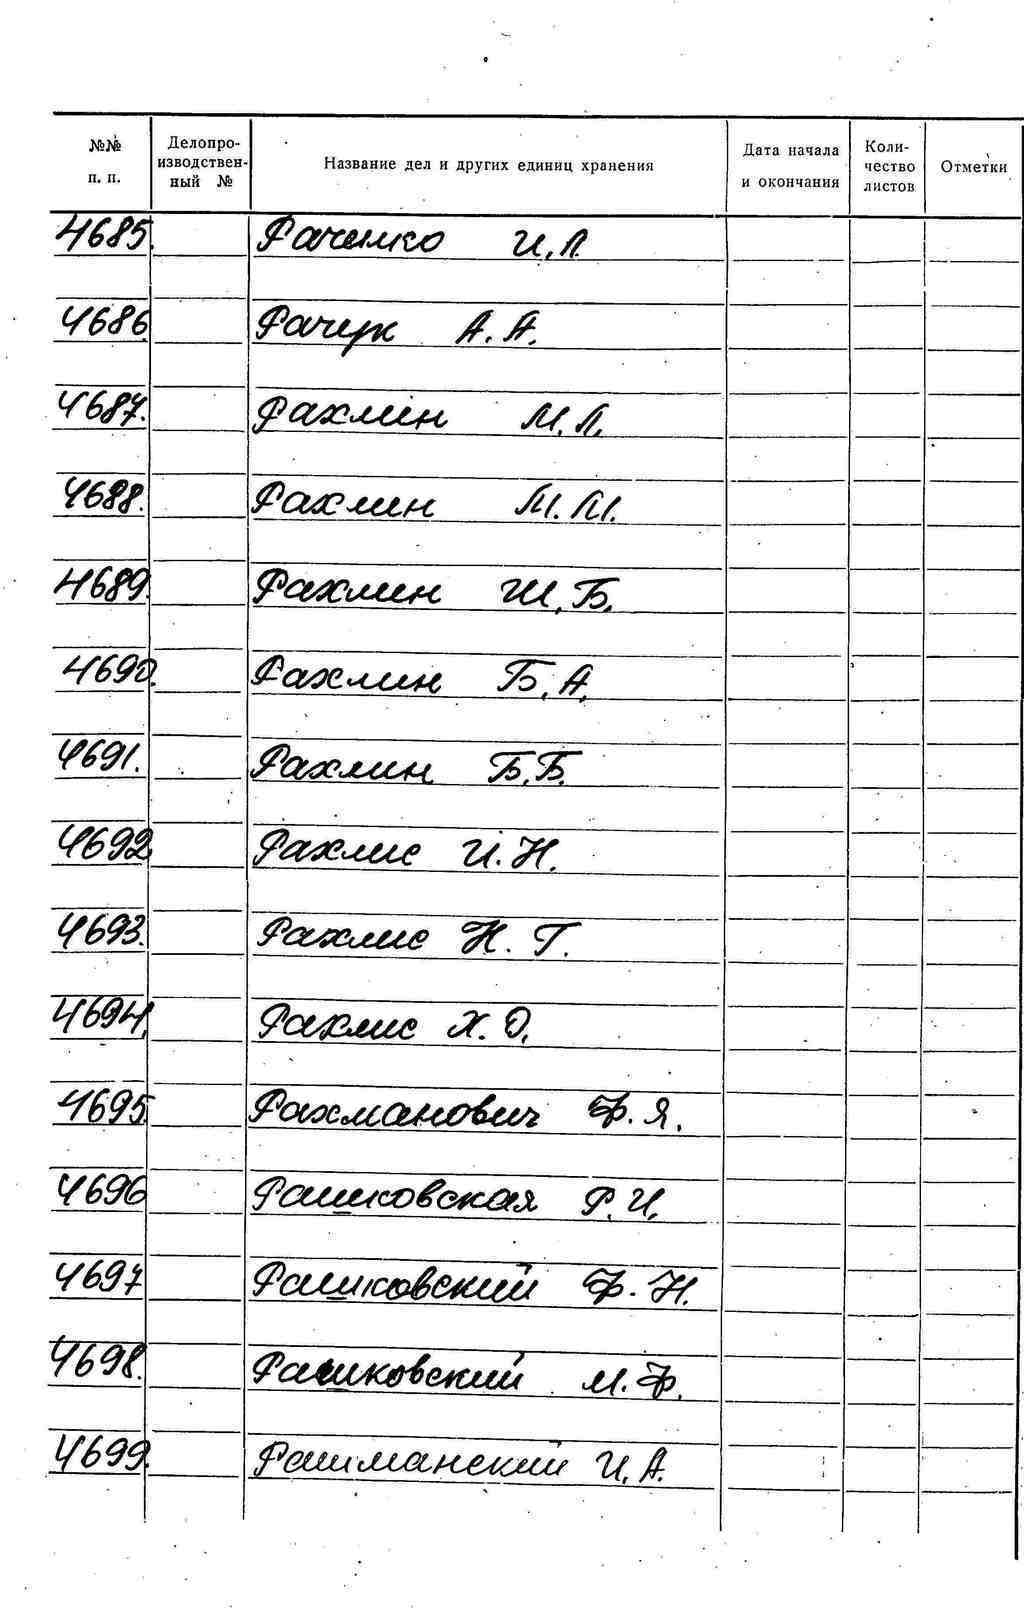 №№ п. п. Делопроизводственный № Название дел и других единиц хранения Дата начала и окончания Количество листов Отметки
4685. И.Л.
4686. Рачук А. А.
4687. Рахмин М.Л.
4688. Рахлин М.М.
4689. Рахлин Ш.Б.
4690. Рахлин Б.А.
4691. Рахлин Б.Б.
4692. Рахлис И.Н.
4693. Рахлис Н. Г.
4694. Рахлис Х. О.
4695. Рахманович Ф. Я.
4696 Рашковская Р. И.
4697 Рашковский Ф. Н.
4698. Рашковский М. Ф.
4699. Рашманский И. А.